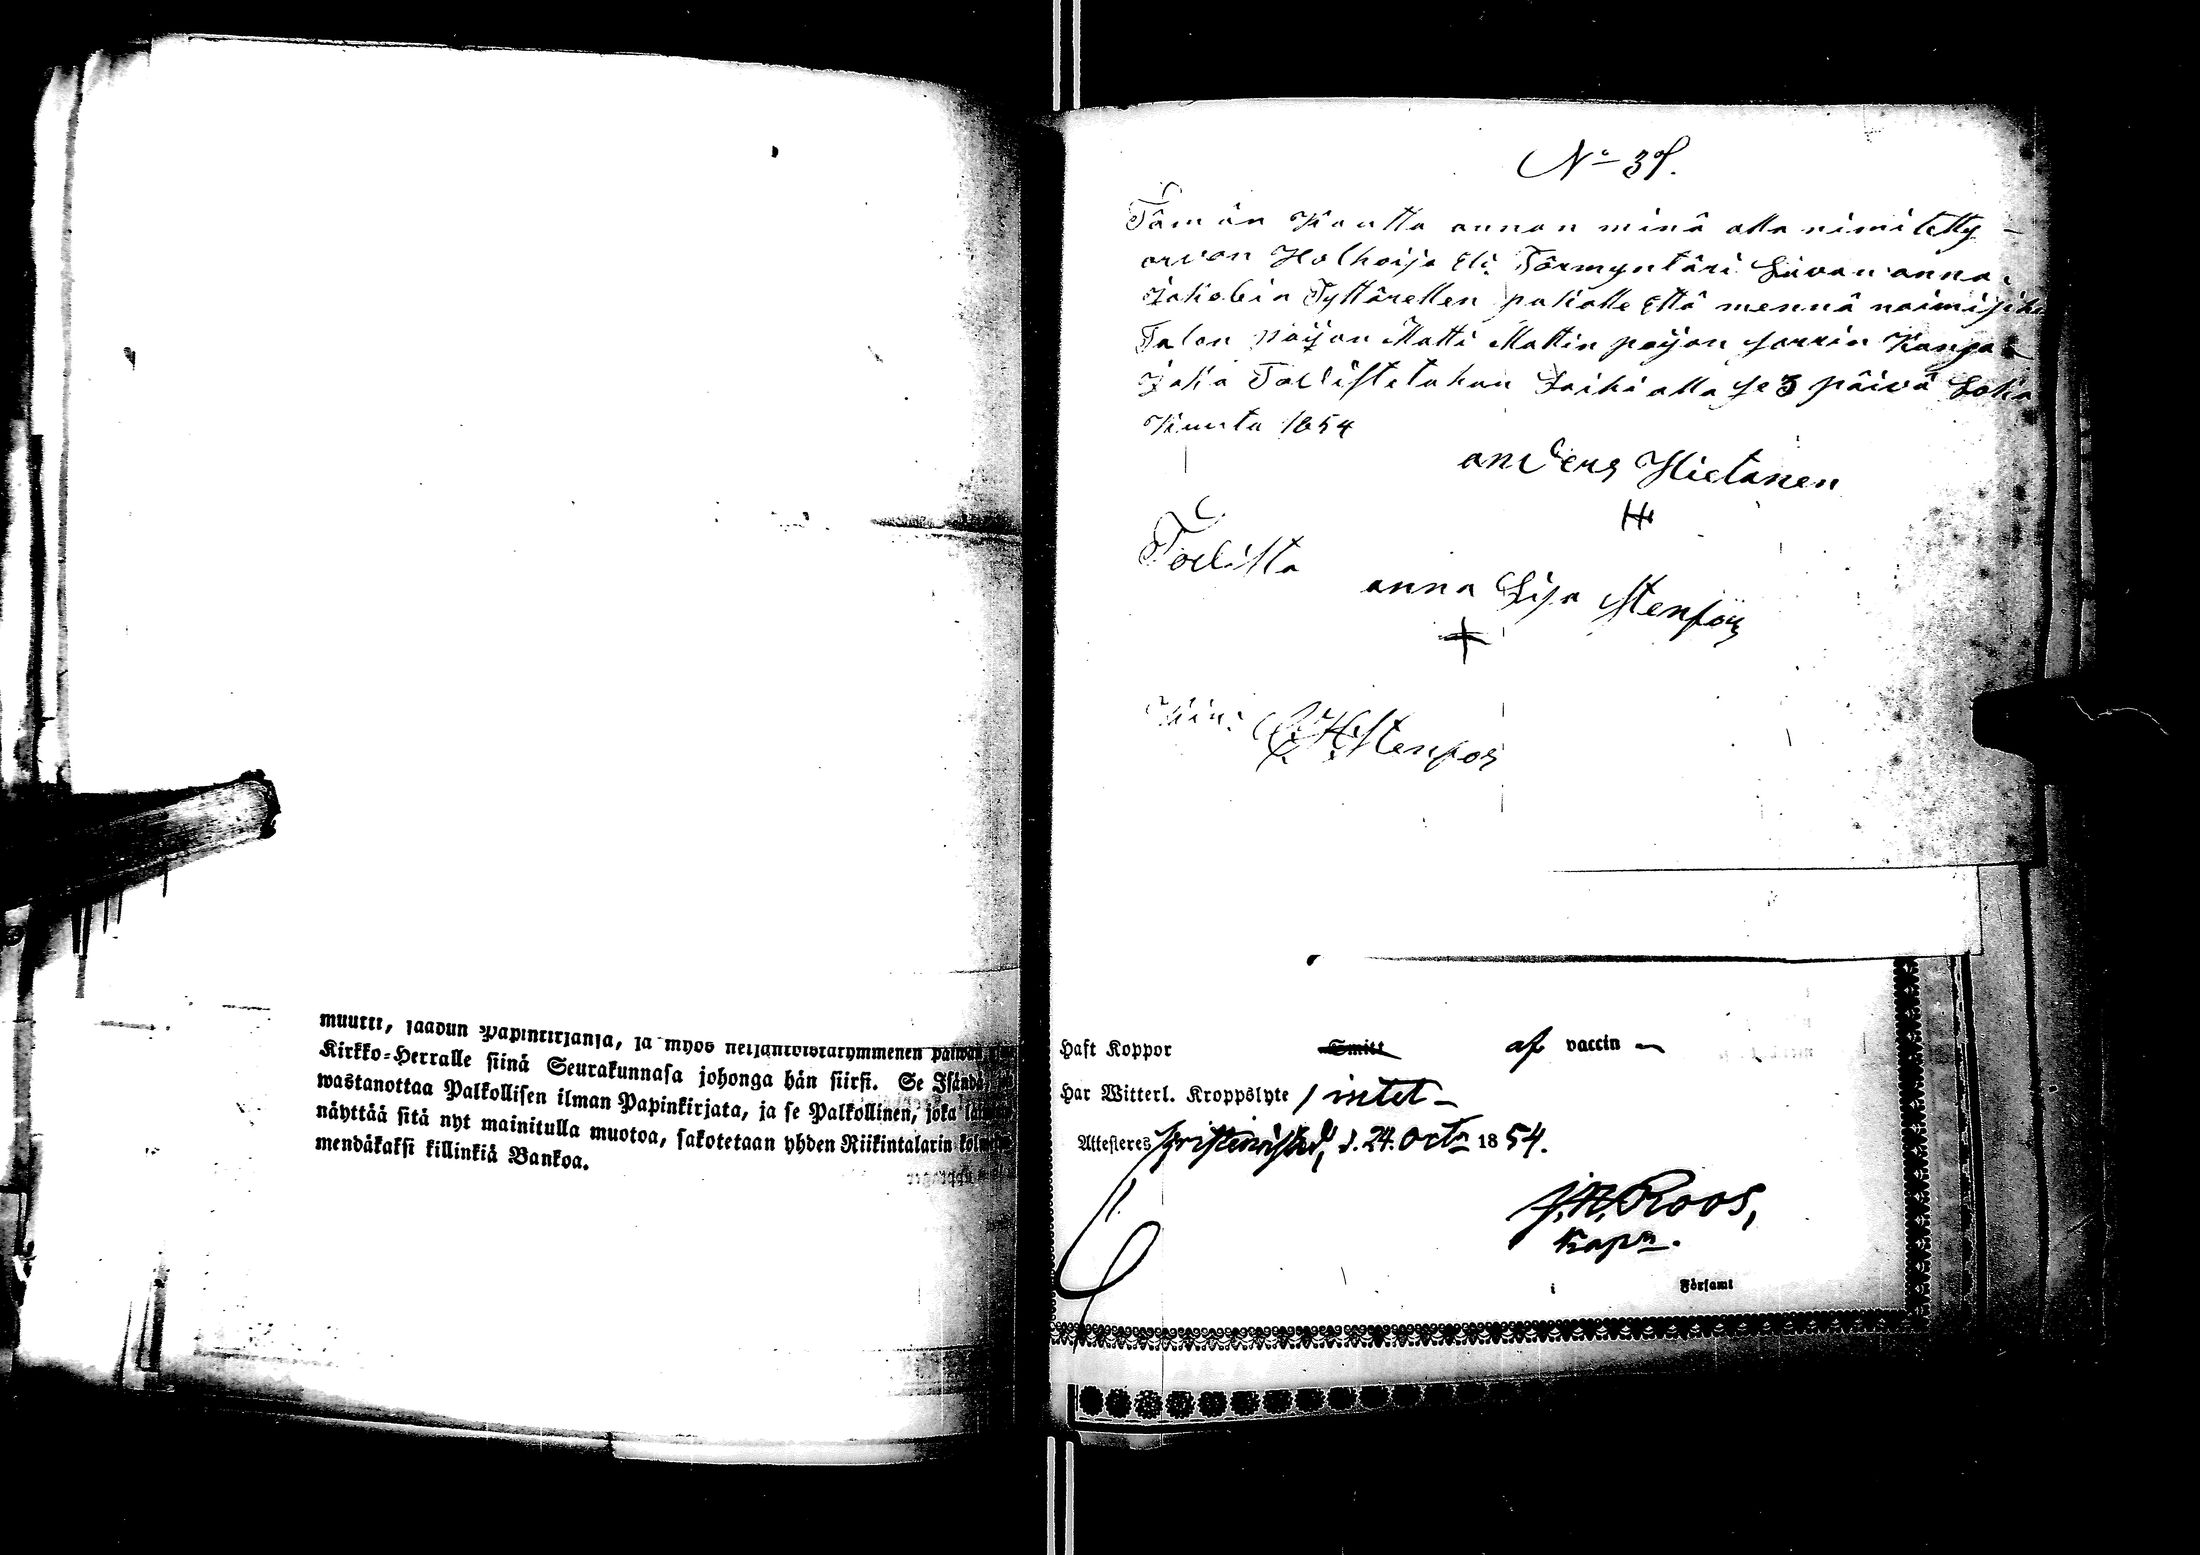 muutti, saadun Papinkirjansa, ja myös neljäntoistakymmenen päiwän
Kirkko-Herralle siinä Seurakunnasa johonga hän siirsi. Se Isändä,
wastanottaa Palkollisen ilman Papinkirjata, ja se Palkollinen, joka
näyttää sitä nyt mainitulla muotoa, sakotetaan yhden Riikintalarin
mendäkaksi killinkiä Bankoa.
No 38.
Tämän Kautta annan minä alla nimitetty
arvon Holhoija Eli Förmyntäri Luvan anna
Jakobin Tyttärellen paikalle Että mennä naimisihi
Talon poijan Matti Mattin poijan
Joka Todistetahan Laihialla se 3 päivä Loka
Kuuta 1854
anders Hietanen
Todista
anna Lisa Stenfors
Stenfors
Haft Koppor Smitt af vaccin
Har Witterl. Kroppslyte / intet
Attesteres Christinestad, d. 24. Octr 1854.
J.N. Roos,
Kapn.
i Församl